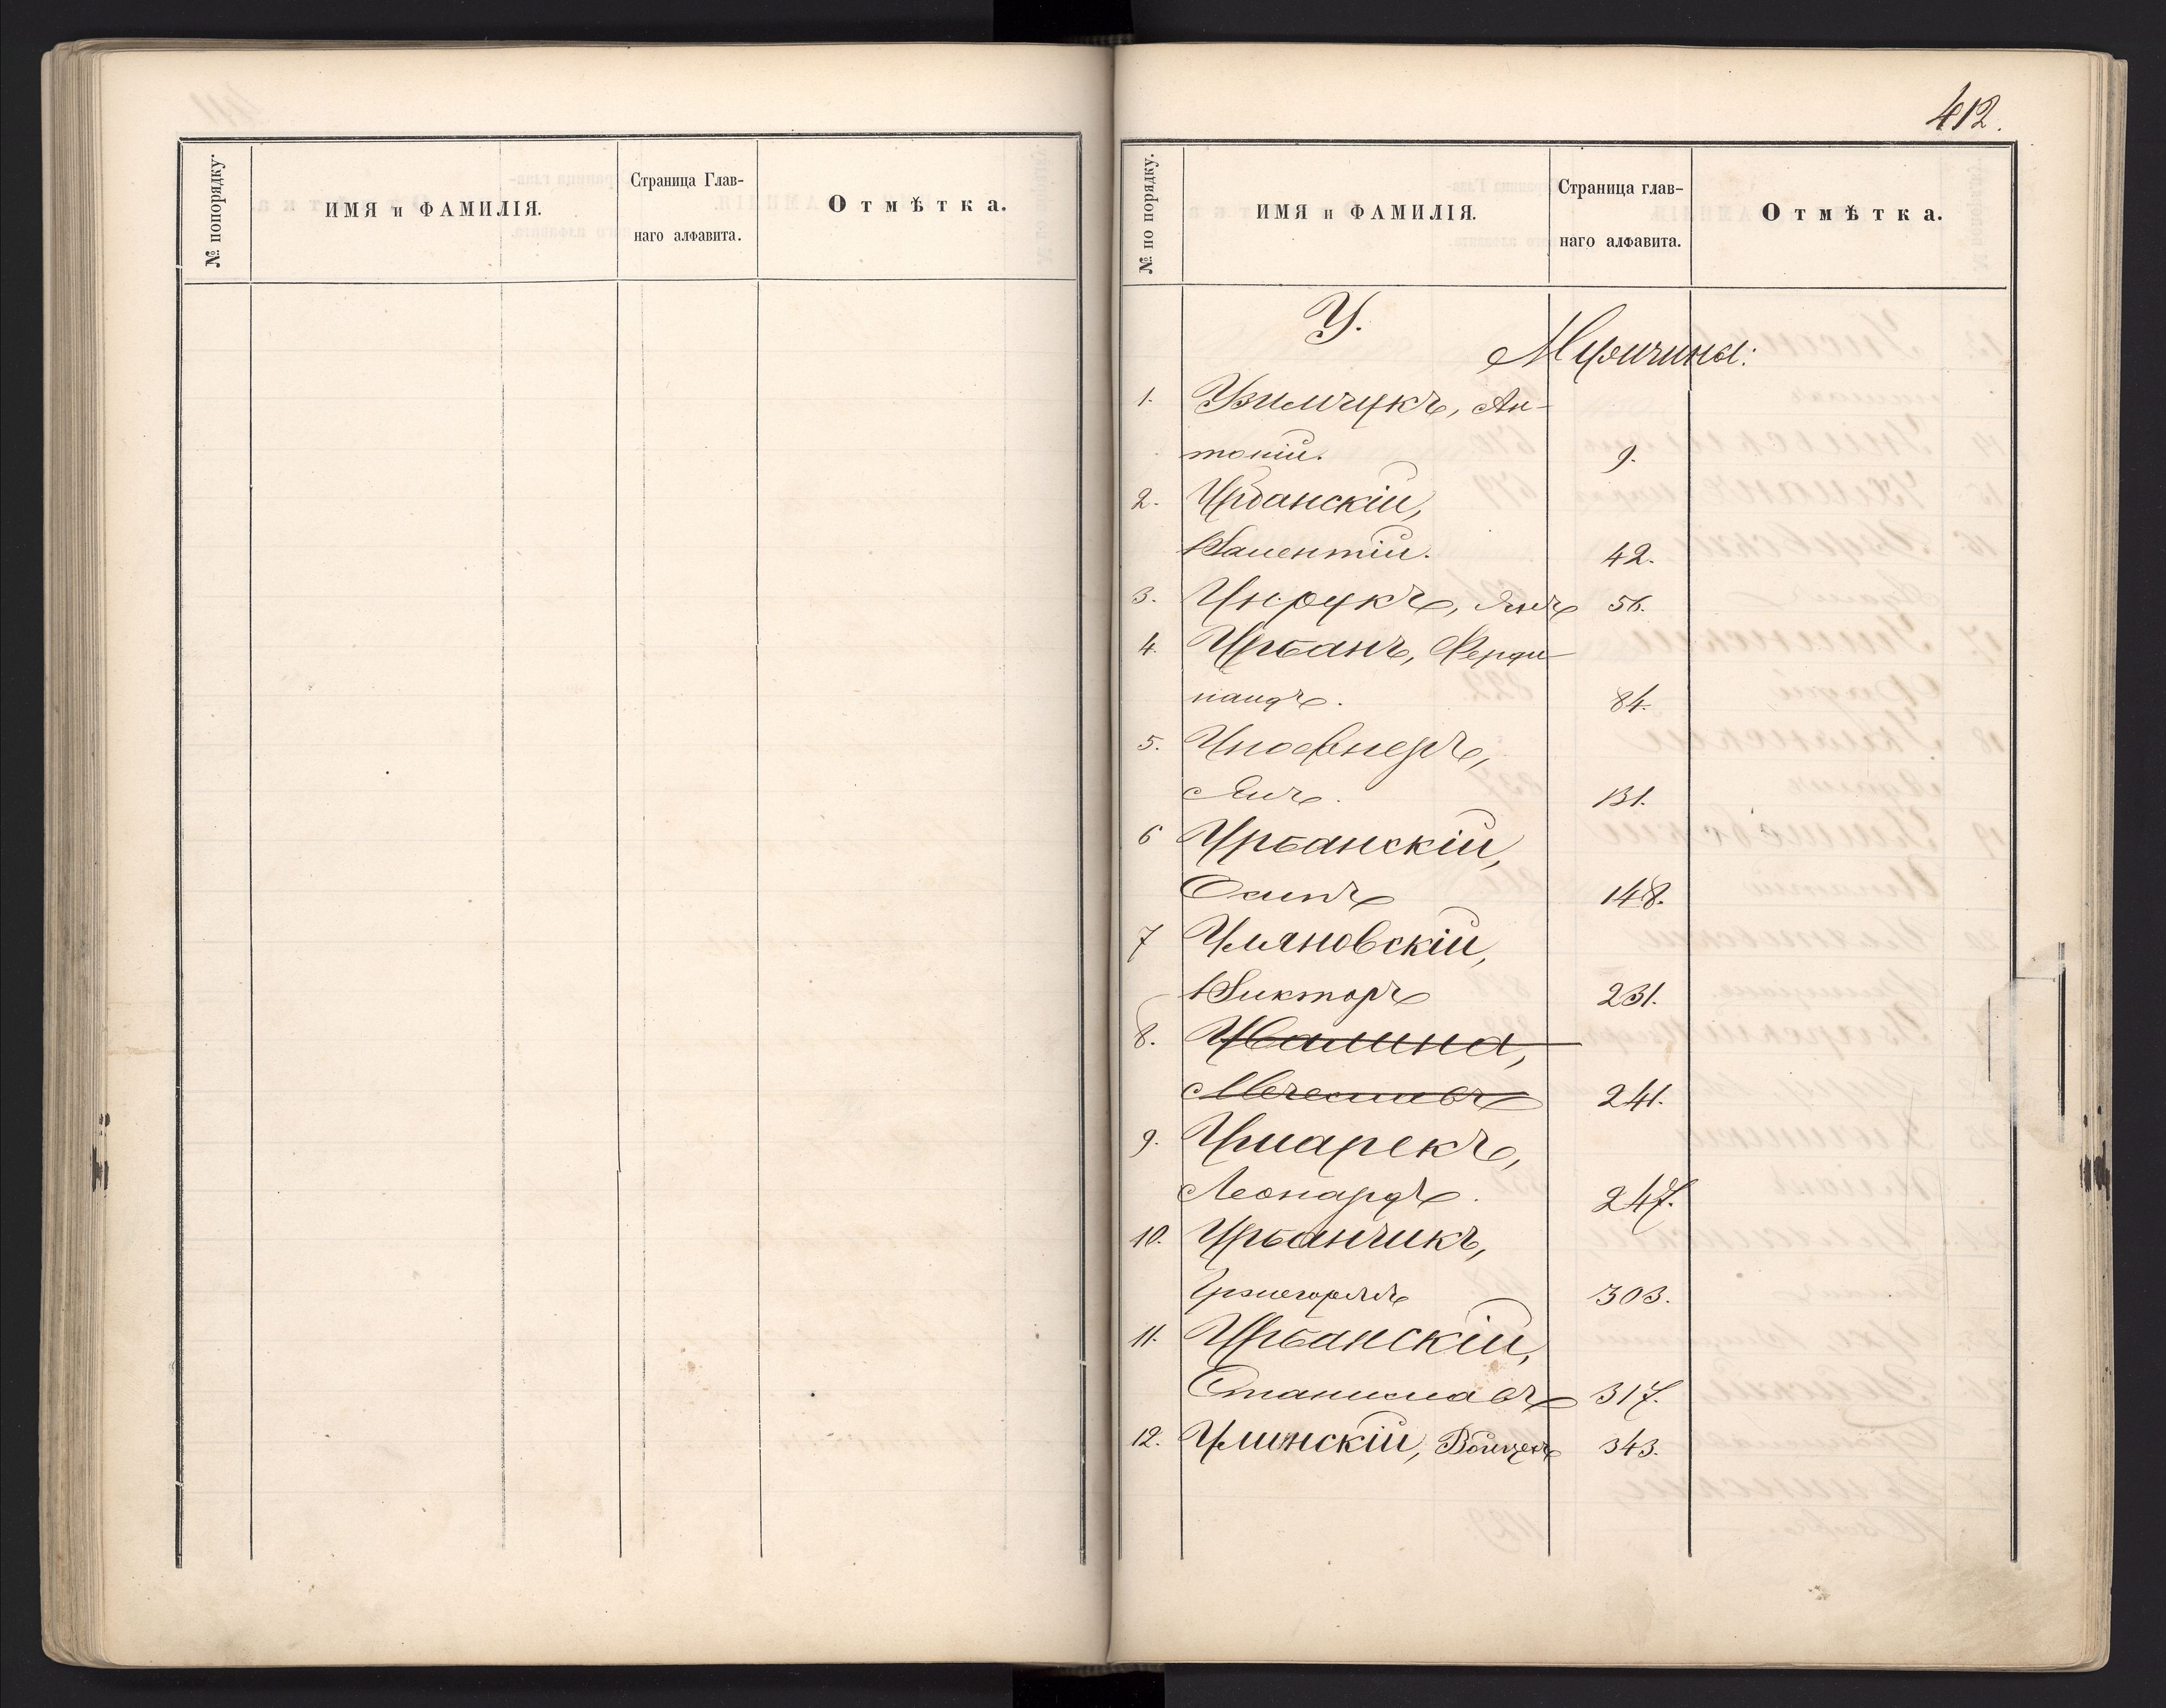 № попорядку.
ИМЯ и ФАМИЛІЯ.
Страница Глав-
наго алфавита.
Отмѣтка.
412.
№ по порядку.
ИМЯ и ФАМИЛІЯ.
Страница глав-
наго алфавита.
Отмѣтка.
У.
Мужчины:
1. Узимчукъ, Ан-
тоній. 9.
2. Урбанскій,
Валентій. 42.
3. Янъ 56.
4. Урбанъ, Ферди-
нандъ. 84.
5.
Янъ. 131.
6 Урбанскій,
Осипъ 148.
7 Уляновскій,
Викторъ 231.
8. Увалина,
Мечеславъ 241.
9.
Леонардъ. 247.
10. Урбанчикъ,
303.
11. Урбанскій,
Станиславъ 317.
12. Улинскій, Войцехъ 343.